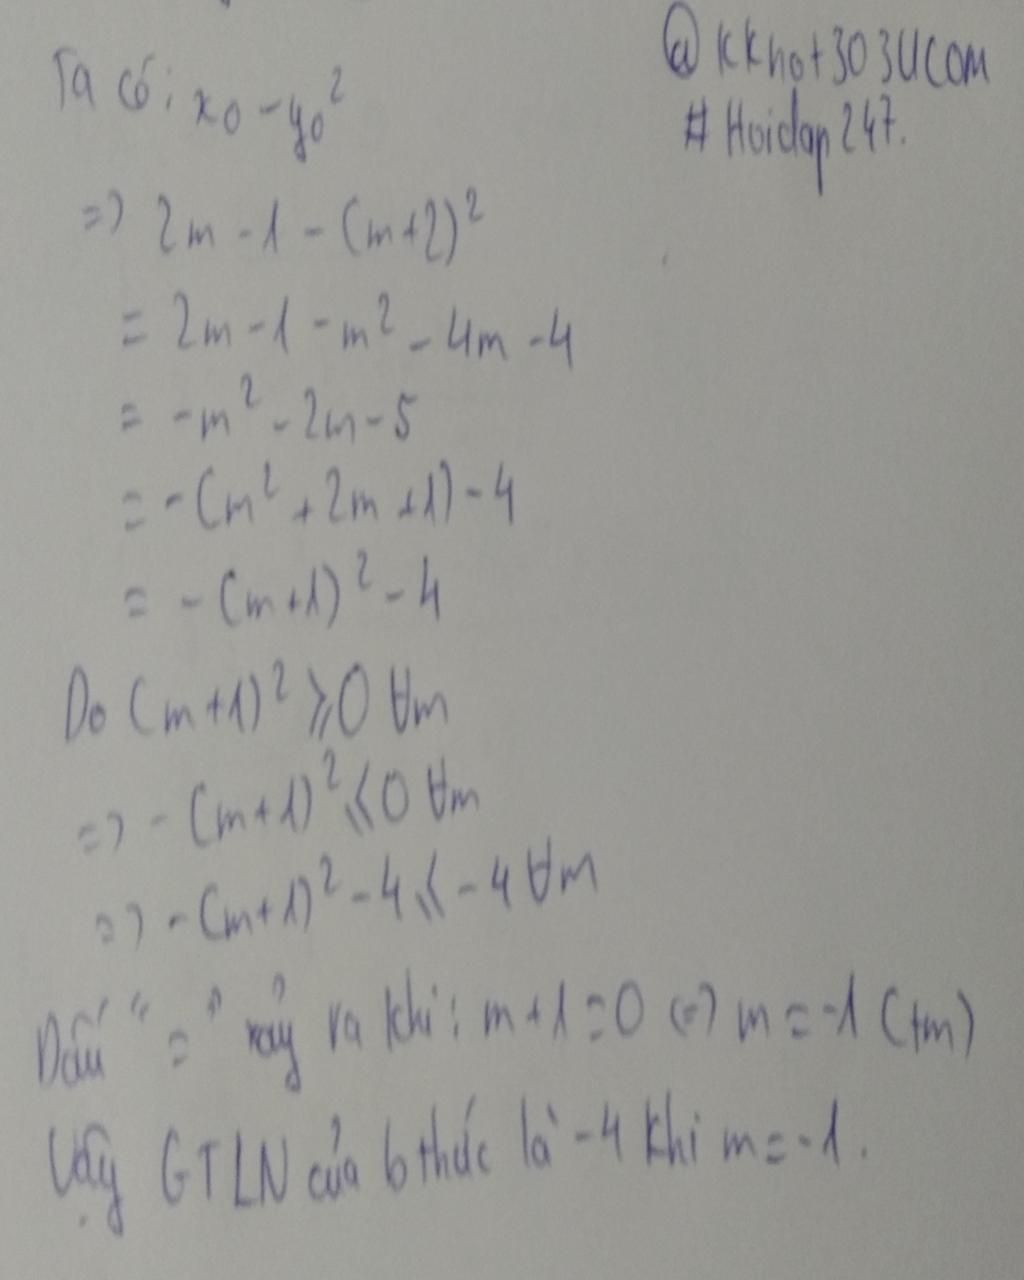 Ta có: x₀ - y₀²
@kkhot303Ucom
# Hoidap247.
=> 2m - 1 - (m+2)²
= 2m - 1 - m² - 4m - 4
= -m² - 2m - 5
= -(m² + 2m + 1) - 4
= -(m+1)² - 4
Do (m+1)² ⩾ 0 ∀m
=> -(m+1)² ⩽ 0 ∀m
=> -(m+1)² - 4 ⩽ -4 ∀m
Dấu "=" xảy ra khi: m+1=0 (=) m=-1 (tm)
Vậy GTLN của b thức là -4 khi m=-1.